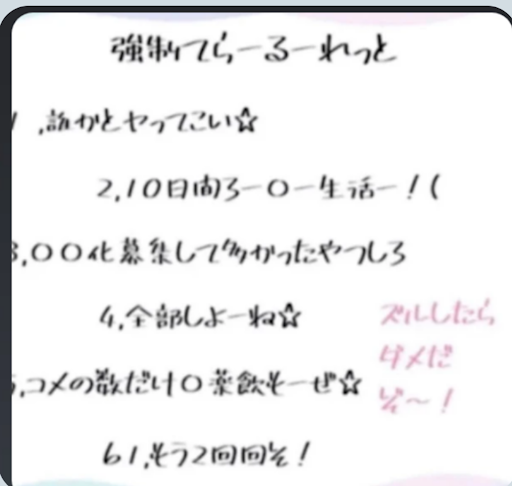 強制てらーるーれっと
1,誰かとヤってこい☆
2,10日間3ー〇ー生活ー!(
3,〇〇化募集して多かったやつしろ
4,全部しよーね☆
5,コメの数だけ〇薬飲もーぜ☆
61,もう2回回そ!
ズルしたら
ダメだ
ぞ〜!